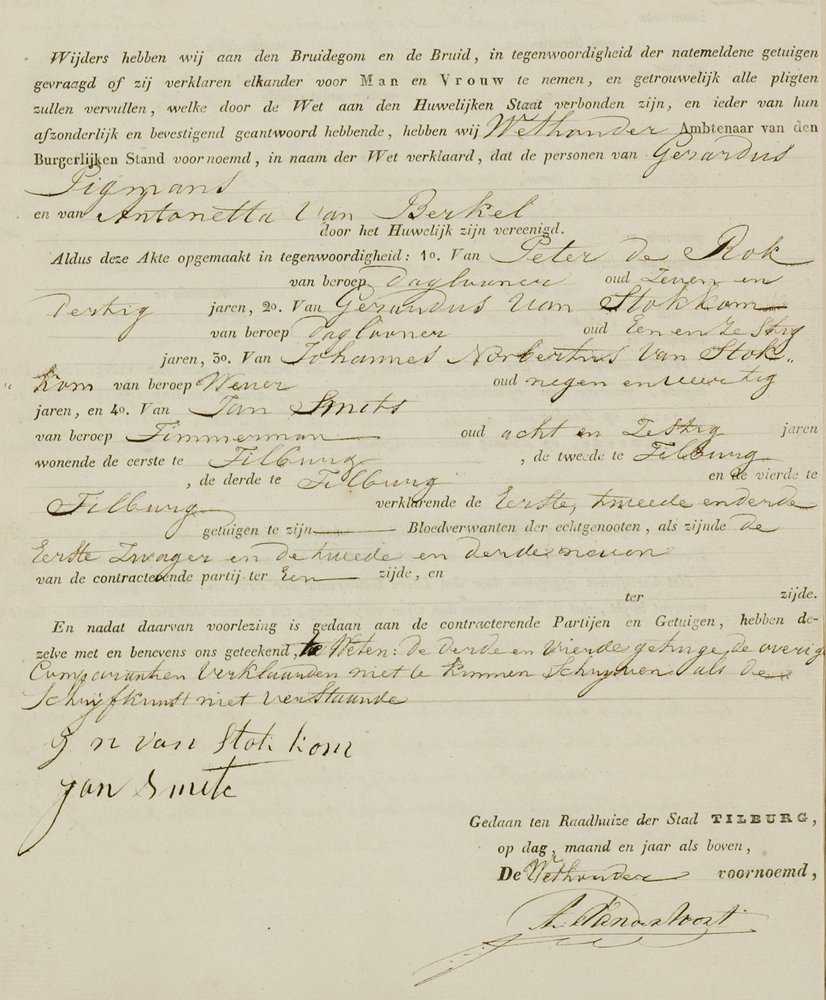 Wijders hebben wij aan den Bruidegom en de Bruid, in tegenwoordigheid der natemeldene getuigen
gevraagd of zij verklaren elkander voor Man en Vrouw te nemen, en getrouwelijk alle pligten
zullen vervullen, welke door de Wet aan den Huwelijken Staat verbonden zijn, en ieder van hun
afzonderlijk en bevestigend geantwoord hebbende, hebben wij Wethouder Ambtenaar van den
Burgerlijken Stand voornoemd, in naam der Wet verklaard, dat de personen van Gerardus
Pigmans
en van Antonetta Van Berkel
door het Huwelijk zijn vereenigd.
Aldus deze Akte opgemaakt in tegenwoordigheid: 1o. Van Peter de Rok
van beroep Daglooner oud Zeven en
Dertig jaren, 2o. Van Gerardus Van Stokkom
van beroep Daglooner oud Een en Zestig
jaren, 3o. Van Johannes Norbertus Van Stok„
„kom van beroep Wever oud negen en veertig
jaren, en 4o. Van Jan Smits
van beroep Timmerman oud acht en Zestig jaren
wonende de eerste te Tilburg, de tweede te Tilburg
, de derde te Tilburg en de vierde te
Tilburg verklarende de Eerste, tweede en derde
getuigen te zijn Bloedverwanten der echtgenooten, als zijnde de
Eerste Zwager en de tweede en derde neven
van de contracteerende partij ter Een zijde, en
ter zijde.
En nadat daarvan voorlezing is gedaan aan de contracterende Partijen en Getuigen, hebben de-
zelve met en benevens ons geteekend, te Weten: de derde en Vierde getuige, de overige
Comparanten Verklaarden niet te kunnen Schryven als de
Schryfkunst niet verstaande
J n van Stok kom
Jan Smits
Gedaan ten Raadhuize der Stad TILBURG,
op dag, maand en jaar als boven,
De Wethouder voornoemd,